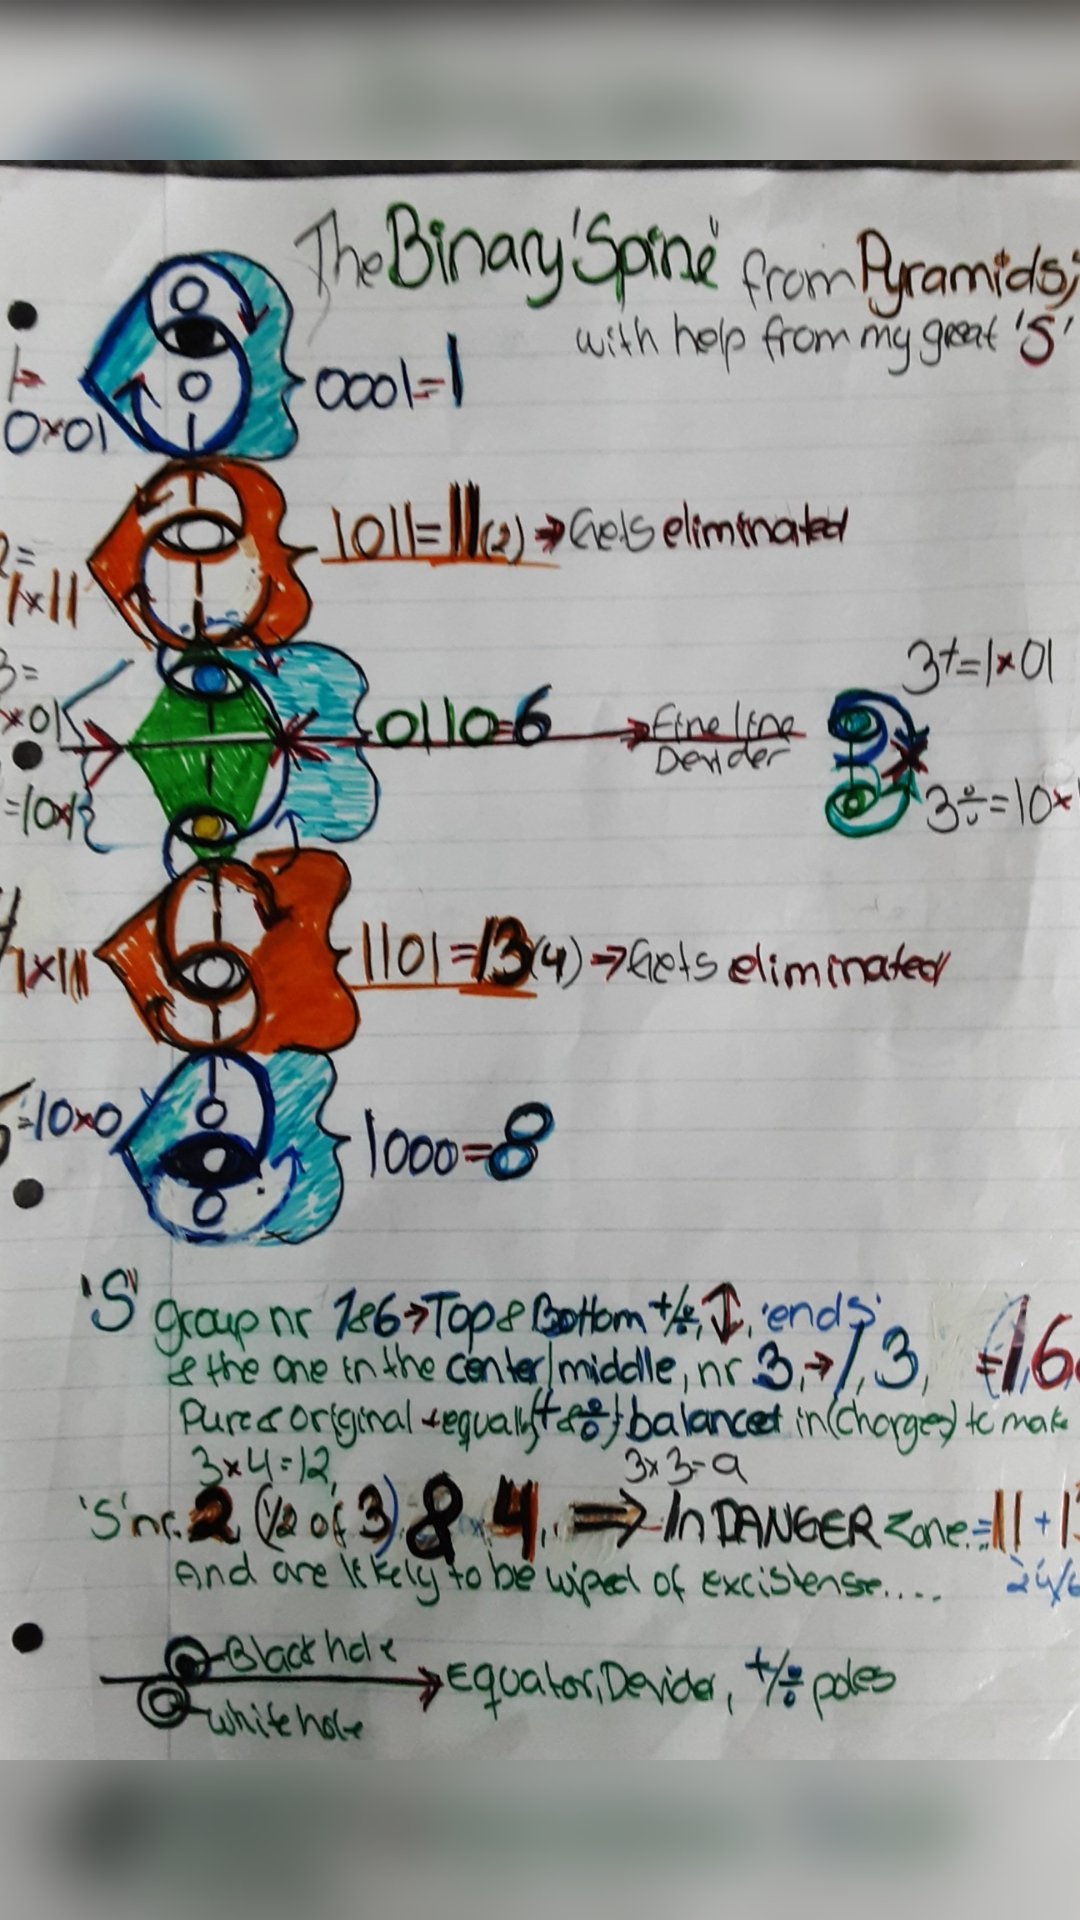 The Binary 'Spine' from Pyramids;
with help from my great 'S'
0
0
1
0001=1
0×01
1011=11(2) → Gets eliminated
2=
1×11
3=
×01
=10×1
0110=6 → Fine line
Devider
3+=1×01
3÷=10×
1101=13(4) → Gets eliminated
=10×0
0
0
1000=8
'S' group nr 1&6→Top & Bottom +/÷, ↕, 'ends'
& the one in the center/middle, nr 3, → 1, 3, =1,6
Pure & original + equally(+&÷) balanced in (charges) to make
3×4=12, 3×3=9
'S' nr. 2 (½ of 3) & 4, ⇒ In DANGER Zone.=11+1
And are likely to be wiped of excistense....
Black hole
→ Equator, Devider, +/÷ poles
white hole